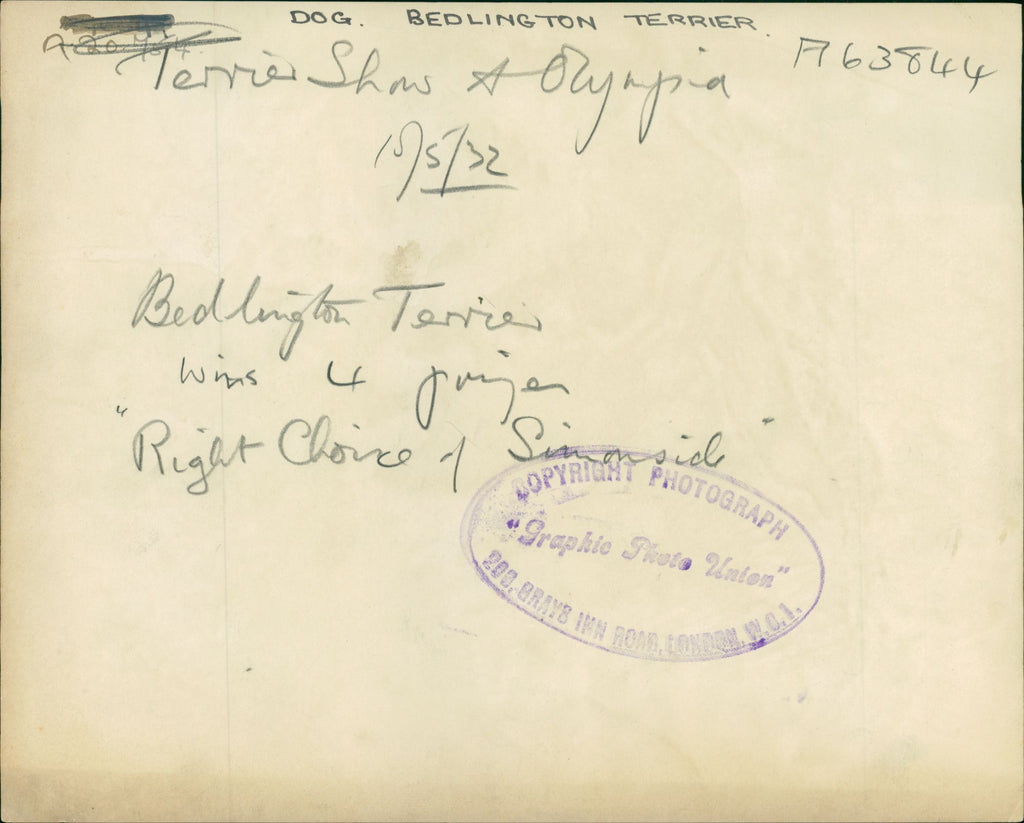 DOG. BEDLINGTON TERRIER.
A63844
Terrier Show at Olympia
10/5/32
Bedlington Terrier
wins 4 prizes
"Right Choice of Simonside"
COPYRIGHT PHOTOGRAPH
"Graphic Photo Union"
GRAYS INN ROAD, LONDON, W.C.1.